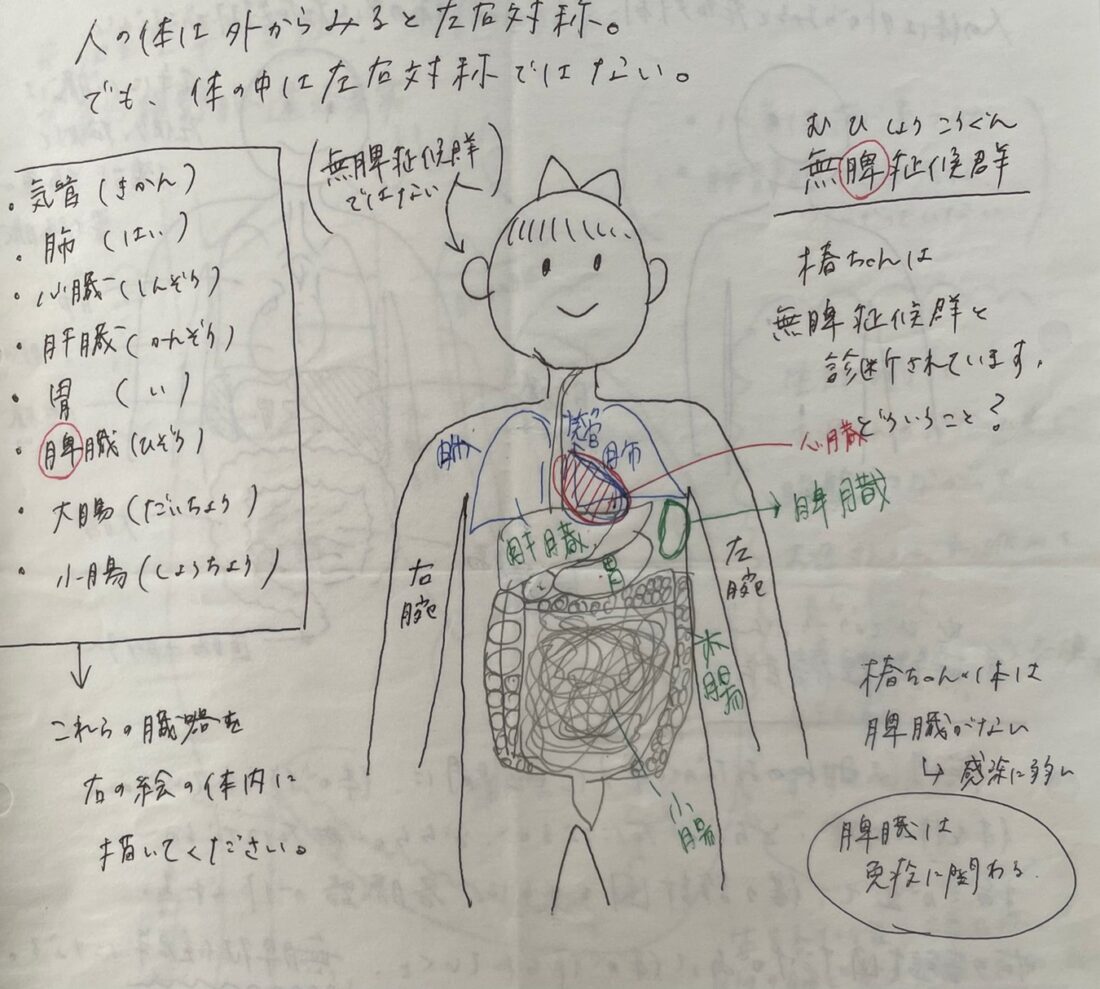 人の体は外からみると左右対称。
でも、体の中は左右対称ではない。
・気管(きかん)
・肺(はい)
・心臓(しんぞう)
・肝臓(かんぞう)
・胃(い)
・脾臓(ひぞう)
・大腸(だいちょう)
・小腸(しょうちょう)
これらの臓器を
右の絵の体内に
描いてください。
(無脾症候群
ではない)
気管
肺
肺
心臓
肝臓
胃
脾臓
大腸
小腸
右腕
左腕
むひしょうこうぐん
無脾症候群
椿ちゃんは
無脾症候群と
診断されています。
どういうこと?
椿ちゃんの体は
脾臓がない
↳感染に弱い
脾臓は
免疫に関わる